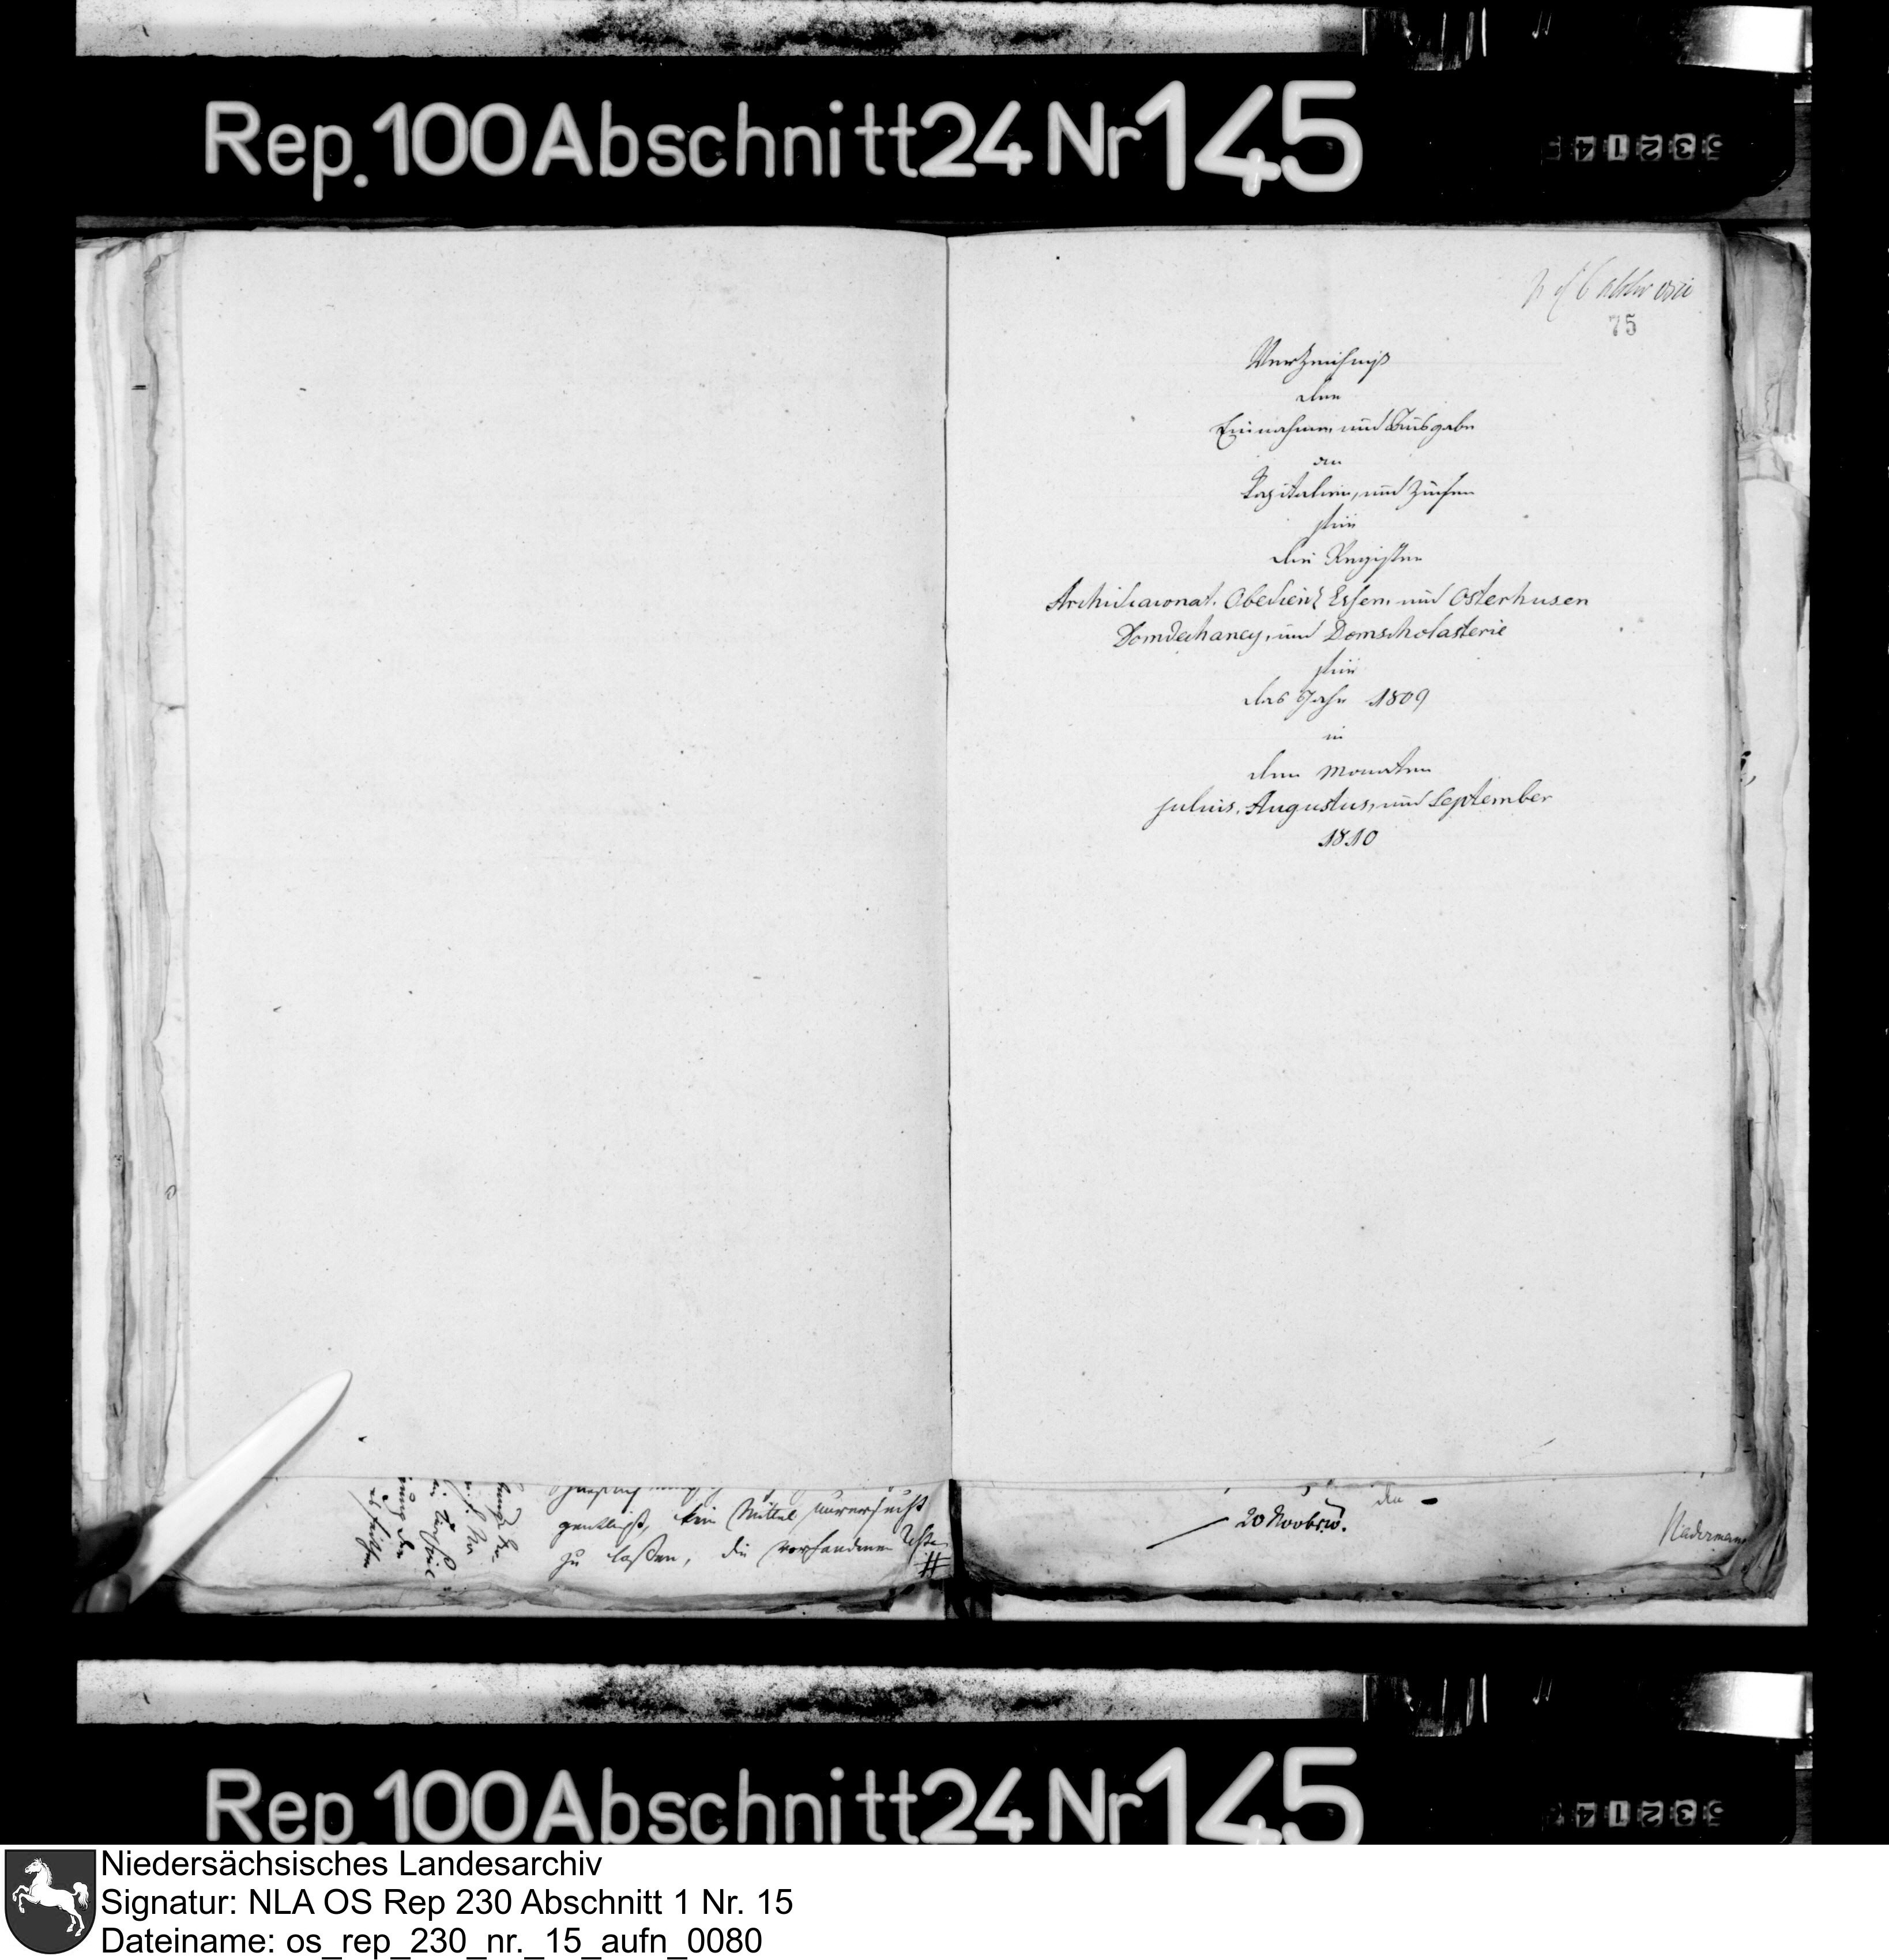 Rep. 100 Abschnitt 24 Nr 145
53214
75
Verzeichniß
der
Einnahme, und Ausgabe
an
Kapitalien, und Zinsen
für
die Register
Archidiaconat. Obedienz Essen, und Osterhusen
Domdechaney, und Domscholasterie
für
das Jahr 1809
in
den Monaten
Julius, Augustus, und September
1810
kein Mittel unversucht
zu laßen, die vorhandenen
#
20 Novbr.
den
Rep. 100 Abschnitt 24 Nr 145
53214
Niedersächsisches Landesarchiv
Signatur: NLA OS Rep 230 Abschnitt 1 Nr. 15
Dateiname: os_rep_230_nr._15_aufn_0080